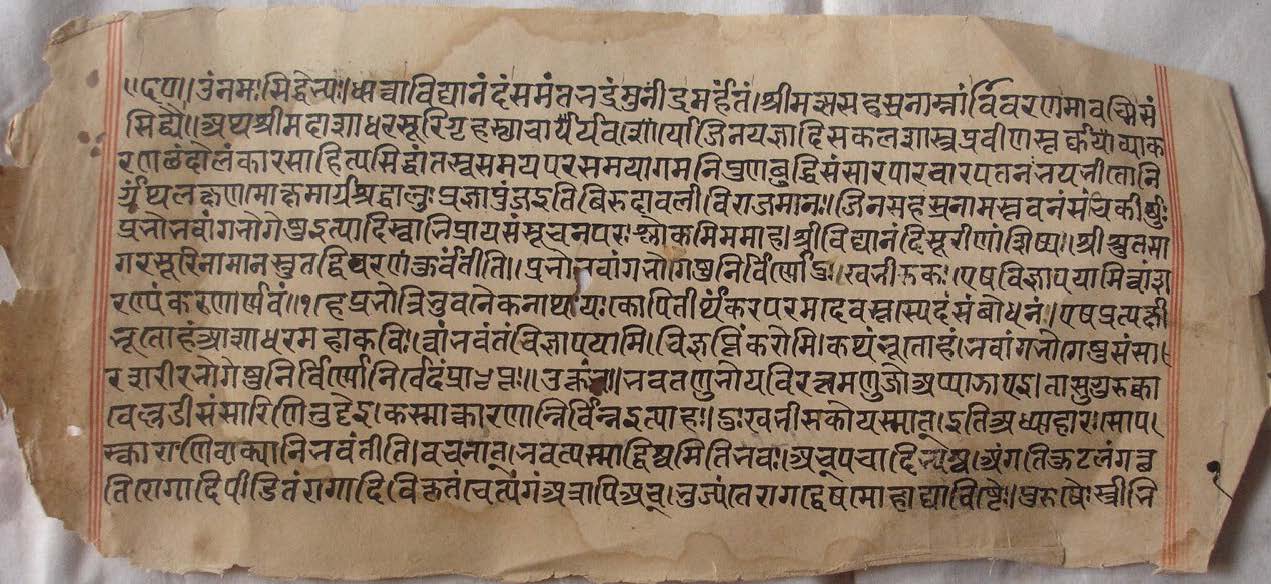 ॥ॐ नमः सिद्धेभ्यः॥ध्यात्वाविद्यानंदंसमंतभद्रंमुनींद्रमर्हंतं।श्रीमत्सहस्रनाम्नांविवरणमावच्मिसं
सिद्ध्यै॥अथश्रीमदाशाधरसूरिगृहस्थाचार्यवर्यो जिनयज्ञादिसकलशास्त्रप्रवीणस्तर्कव्याक
रणछंदोलंकारसाहित्यसिद्धांतस्वसमयपरसमयागमनिपुणबुद्धिसंसारपारवारपतनभयभीतोनि
र्ग्रंथलक्षणमोक्षमार्गश्रद्धालुःप्रज्ञापुंजइतिबिरुदावलीविराजमानः।जिनसहस्रनामस्तवनंसंचिकीर्षुः
प्रभोभवांगभोगेषुइत्यादिस्वाभिप्रायसंसूचनपरःश्लोकमिममाह।श्रीविद्यानंदिसूरीणांशिष्यः।श्रीश्रुतसा
गरसूरिनामानस्तुतद्विवरणंकुर्वंतीति॥प्रभोभवांगभोगेषुनिर्विण्णोदुःखभीरुकः।एषविज्ञापयामित्वांश
रण्यंकरुणार्णवं॥१हेप्रभोत्रिभुवनैकनाथयःकोपितीर्थंकरपरमदेवस्तस्येदंसंबोधनं।एषप्रत्यक्षी
भूतोहंआशाधरमहाकविः।त्वांभवंतंविज्ञापयामि।विज्ञप्तिंकरोमि।कथंभूतोहं।भवांगभोगेषुसंसा
रशरीरभोगेषुनिर्विण्णोनिर्वेदंप्राप्तः॥उक्तंच॥भवतणुभोयविरत्तमणुजोअप्पाझाएइ।तासुगुरुक्की
वेल्लडीसंसारिणितुट्टेइ।कस्मात्कारणान्निर्विन्नइत्याह।दुःखभीरुकोयस्मात्।इतिअध्याहारः।सोप
स्काराणिवाक्यानिभवंतीति।वचनात्।भवत्यस्माद्विश्वमितिभवः।अच्पचादिभ्यश्च।अंगतिकुटिलंगच्छ
तिरोगादिपीडितंरागादिविकृतंचेत्यंगंअत्रापिअच्।भुज्यंतेरागद्वेषमोहाद्याविष्टैः।पुरुषैःस्त्रीभि